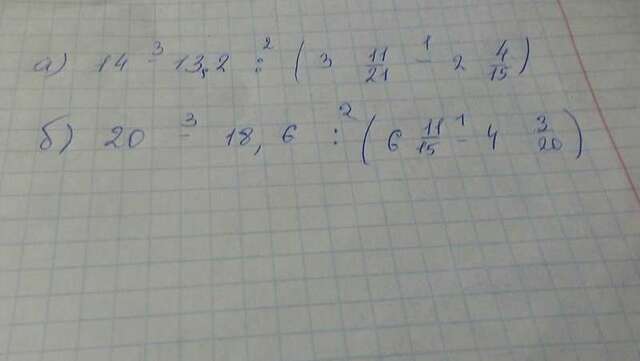 а) 14 -³ 13,2 :² ( 3 11/21 -¹ 2 4/15 )
б) 20 -³ 18,6 :² ( 6 11/15 -¹ 4 3/20 )